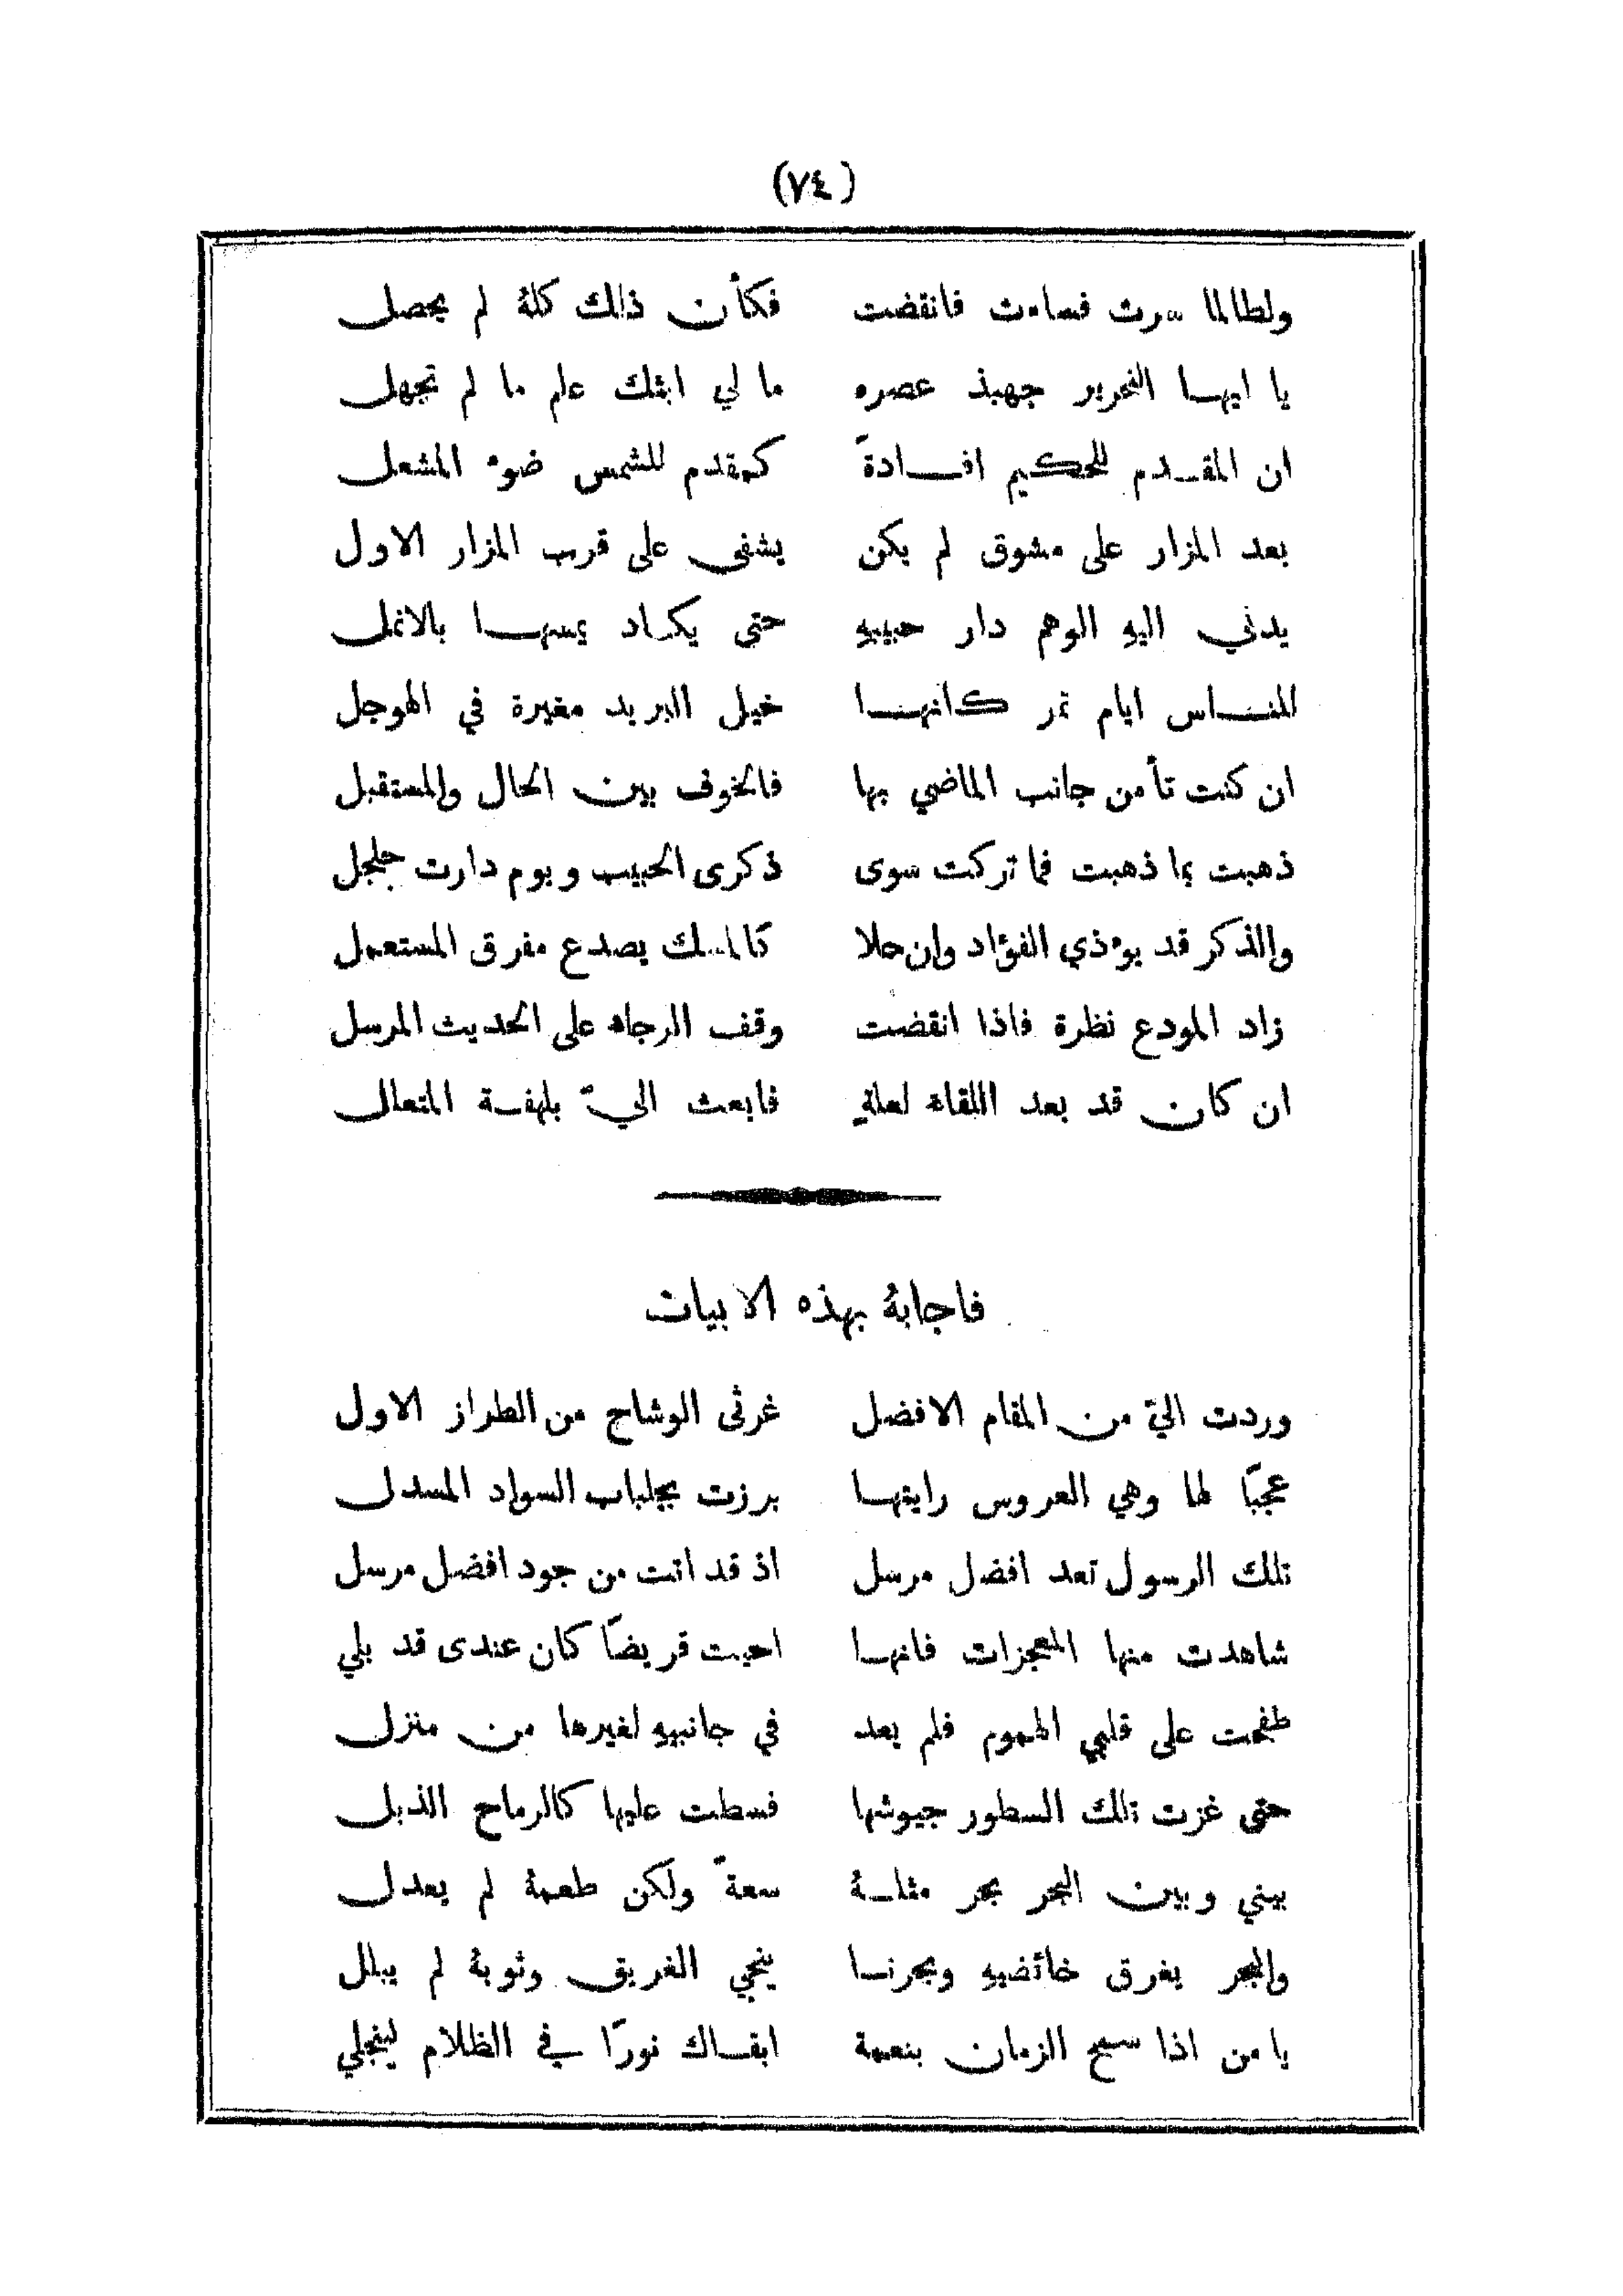 (٧٤)
ولطالما سرت فساءت فانقضت فكأن ذلك كلهُ لم يحصل
يا ايهـا النحرير جهبذ عصره ما لي ابثك علم ما لم تجهل
ان المقـدم للحكيم افـادةً كمقدم للشمس ضوء المشعل
بعد المزار على مشوق لم يكن يشفى على قرب المزار الاول
يدني اليهِ الوهم دار حبيبهِ حتى يكاد يمسهـا بالانمل
للنـاس ايام تمر كانهـا خيل البريد مغيرة في الهوجل
ان كنت تأمن جانب الماضي بها فالخوف بين الحال والمستقبل
ذهبت بما ذهبت فما تركت سوى ذكرى الحبيب ويوم دارت جلجل
والذكر قد يوءذي الفؤاد وان حلا كالمسك يصدع مفرق المستعمل
زاد المودع نظرة فاذا انقضت وقف الرجاء على الحديث المرسل
ان كان قد بعد اللقاء لعلةٍ فابعث اليَّ بلهفـة المتعال
فاجابهُ بهذه الابيات
وردت اليَّ من المقام الافضل غرثى الوشاح من الطراز الاول
عجبًا لها وهي العروس رايتهـا برزت بجلباب السواد المسدل
تلك الرسول تعد افضل مرسل اذ قد اتت من جود افضل مرسل
شاهدت منها المعجزات فانهـا احيت قريضًا كان عندى قد بلي
طفحت على قلبي الهموم فلم يعد في جانبيهِ لغيرها من منزل
حتى غزت تلك السطور جيوشها فسطت عليها كالرماح الذبل
بيني وبين البحر بحر مثلـهُ سعةً ولكن طعمهُ لم يعدل
والبحر يغرق خائضيهِ وبحرنـا ينجي الغريق وثوبهُ لم يبلل
يا من اذا سمح الزمان بنعمة ابقـاك نورًا في الظلام لينجلي